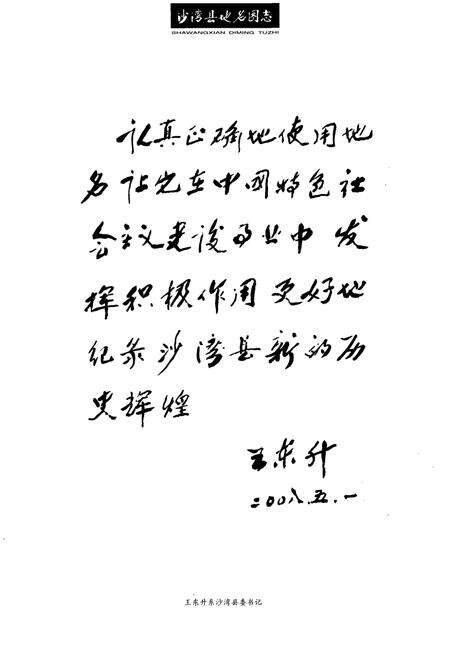 沙湾县地名图志
SHAWANGXIAN DIMING TUZHI
认真正确地使用地
名 让它在中国特色社
会主义建设事业中 发
挥积极作用 更好地
纪录沙湾县新的历
史辉煌
王东升
二〇〇八.五.一
王东升系沙湾县委书记